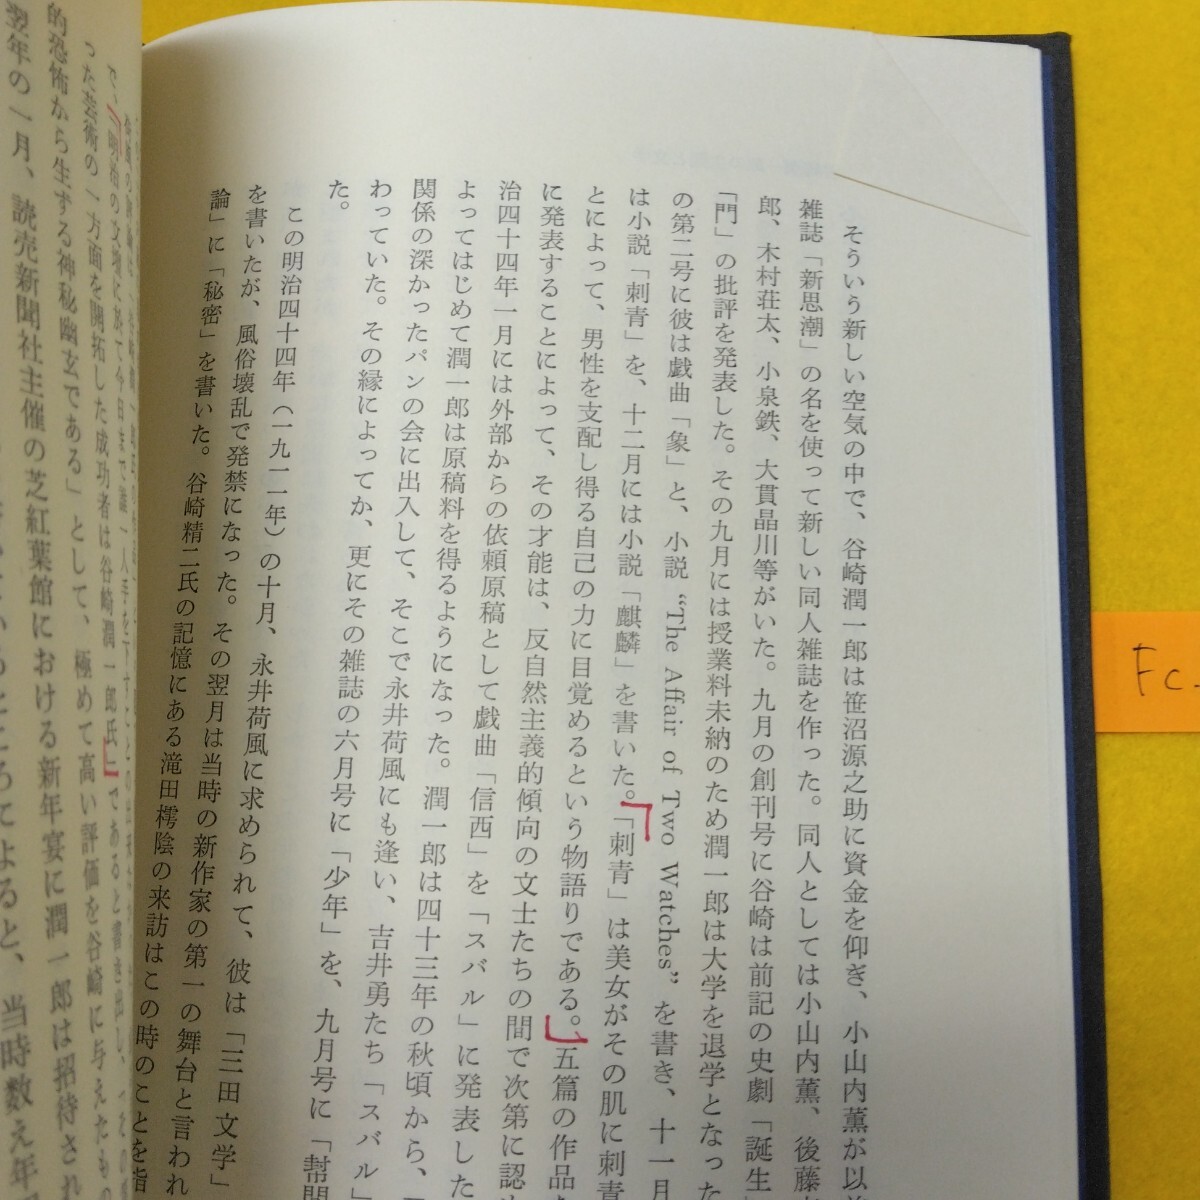 そういう新しい空気の中で、谷崎潤一郎は笹沼源之助に資金を仰ぎ、小山内薫が以前
雑誌「新思潮」の名を使って新しい同人雑誌を作った。同人としては小山内薫、後藤
郎、木村荘太、小泉鉄、大貫晶川等がいた。九月の創刊号に谷崎は前記の史劇「誕生」
「門」の批評を発表した。その九月には授業料未納のため潤一郎は大学を退学となった
の第二号に彼は戯曲「象」と、小説“The Affair of Two Watches”を書き、十一月
は小説「刺青」を、十二月には小説「麒麟」を書いた。「刺青」は美女がその肌に刺青
とによって、男性を支配し得る自己の力に目覚めるという物語りである。五篇の作品
に発表することによって、その才能は、反自然主義的傾向の文士たちの間で次第に認め
治四十四年一月には外部からの依頼原稿として戯曲「信西」を「スバル」に発表した
よってはじめて潤一郎は原稿料を得るようになった。潤一郎は四十三年の秋頃から、
関係の深かったパンの会に出入して、そこで永井荷風にも逢い、吉井勇たち「スバル」
わっていた。その縁によってか、更にその雑誌の六月号に「少年」を、九月号に「幇間
た。
この明治四十四年（一九一一年）の十月、永井荷風に求められて、彼は「三田文学」
を書いたが、風俗壊乱で発禁になった。その翌月は当時の新作家の第一の舞台と言われ
論」に「秘密」を書いた。谷崎精二氏の記憶にある滝田樗陰の来訪はこの時のことを指
で、「明治の文壇に於て今日まで誰一人手を下すことの出来な
った芸術の一方面を開拓した成功者は谷崎潤一郎氏」であると書き出し、
的恐怖から生ずる神秘幽玄である」として、極めて高い評価を谷崎に与えたもの
翌年の一月、読売新聞社主催の芝紅葉館における新年宴に潤一郎は招待され
ところによると、当時数え年
FC-